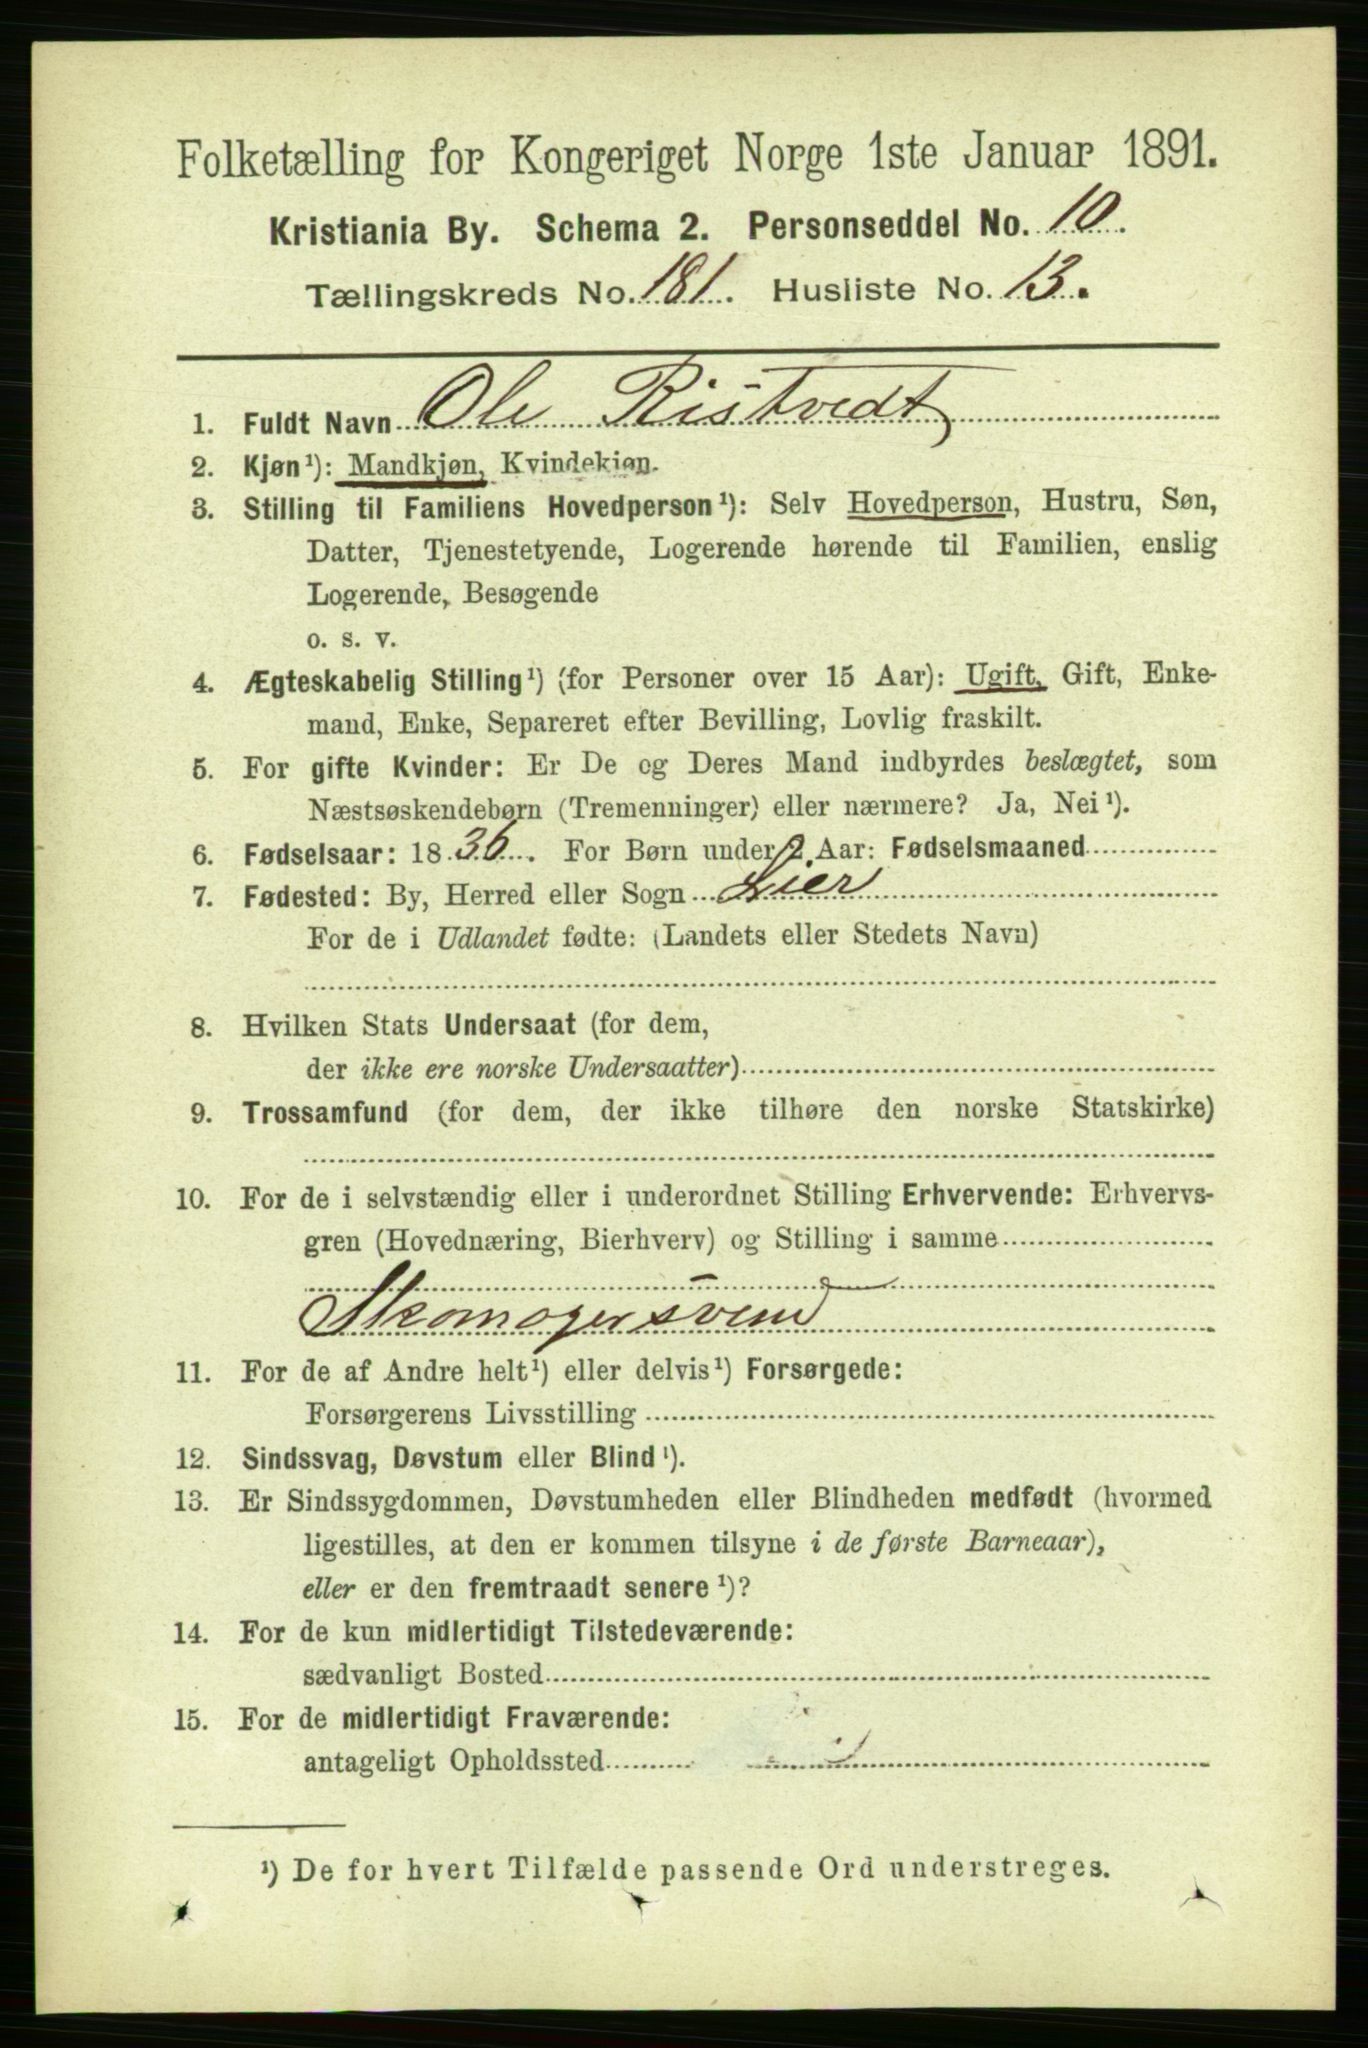 Folketælling for Kongeriget Norge 1ste Januar 1891.
Kristiania By. Schema 2. Personseddel No. 10.
Tællingskreds No. 181. Husliste No. 13.
1. Fuldt Navn Ole Ristvedt
2. Kjøn¹): Mandkjøn, Kvindekjøn.
3. Stilling til Familiens Hovedperson¹): Selv Hovedperson, Hustru, Søn,
Datter, Tjenestetyende, Logerende hørende til Familien, enslig
Logerende, Besøgende
o. s. v.
4. Ægteskabelig Stilling¹) (for Personer over 15 Aar): Ugift, Gift, Enke-
mand, Enke, Separeret efter Bevilling, Lovlig fraskilt.
5. For gifte Kvinder: Er De og Deres Mand indbyrdes beslægtet, som
Næstsøskendebørn (Tremenninger) eller nærmere? Ja, Nei¹).
6. Fødselsaar: 1836. For Børn under 2 Aar: Fødselsmaaned
7. Fødested: By, Herred eller Sogn Lier
For de i Udlandet fødte: (Landets eller Stedets Navn)
8. Hvilken Stats Undersaat (for dem,
der ikke ere norske Undersaatter)
9. Trossamfund (for dem, der ikke tilhøre den norske Statskirke)
10. For de i selvstændig eller i underordnet Stilling Erhvervende: Erhvervs-
gren (Hovednæring, Bierhverv) og Stilling i samme
Skomagersvend
11. For de af Andre helt¹) eller delvis¹) Forsørgede:
Forsørgerens Livsstilling
12. Sindssvag, Døvstum eller Blind¹).
13. Er Sindssygdommen, Døvstumheden eller Blindheden medfødt (hvormed
ligestilles, at den er kommen tilsyne i de første Barneaar),
eller er den fremtraadt senere¹)?
14. For de kun midlertidigt Tilstedeværende:
sædvanligt Bosted
15. For de midlertidigt Fraværende:
antageligt Opholdssted
¹) De for hvert Tilfælde passende Ord understreges.